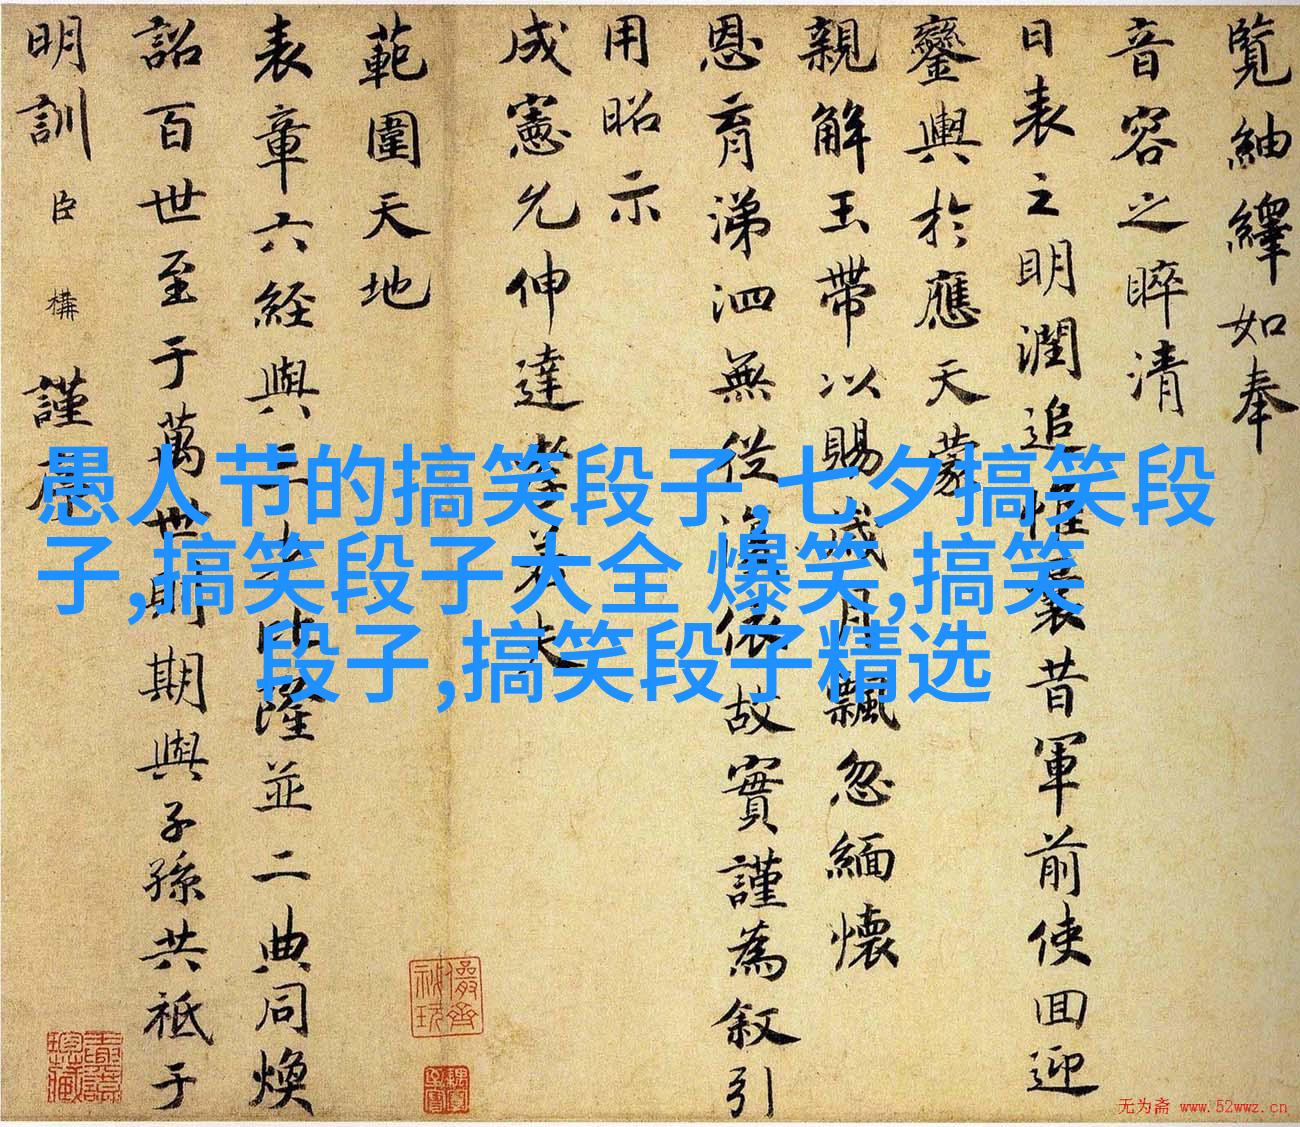 覽紬繹如奉
音容之睟清
日表之明潤追惟曩昔軍前使回迎
鑾輿於應天蒙
親解玉帶以賜歲月飄忽緬懷
恩育涕泗無從謹依故實謹為叙引
用昭示
成憲允伸達孝若夫
範圍天地
表章六經與三
隆並二典同煥
詔百世至于萬世則期與子孫共祗于
明訓臣構謹序
愚人节的搞笑段子,七夕搞笑段
子,搞笑段子大全 爆笑,搞笑
段子,搞笑段子精选
无为斋 www.52wwz.cn